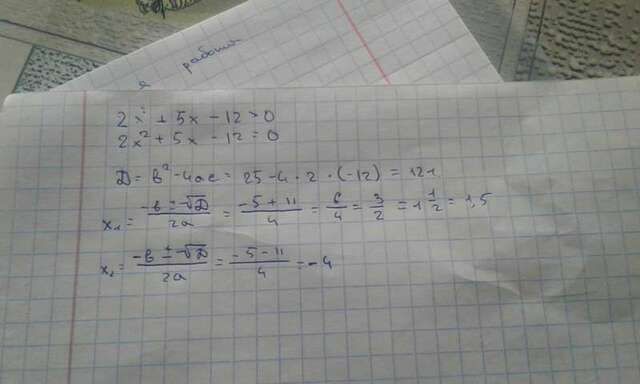 я работи
2x² + 5x - 12 > 0
2x² + 5x - 12 = 0
D = b² - 4ac = 25 - 4 · 2 · (-12) = 121
x₁ = -b ± √D / 2a = -5 + 11 / 4 = 6/4 = 3/2 = 1 1/2 = 1,5
x₂ = -b ± √D / 2a = -5 - 11 / 4 = -4